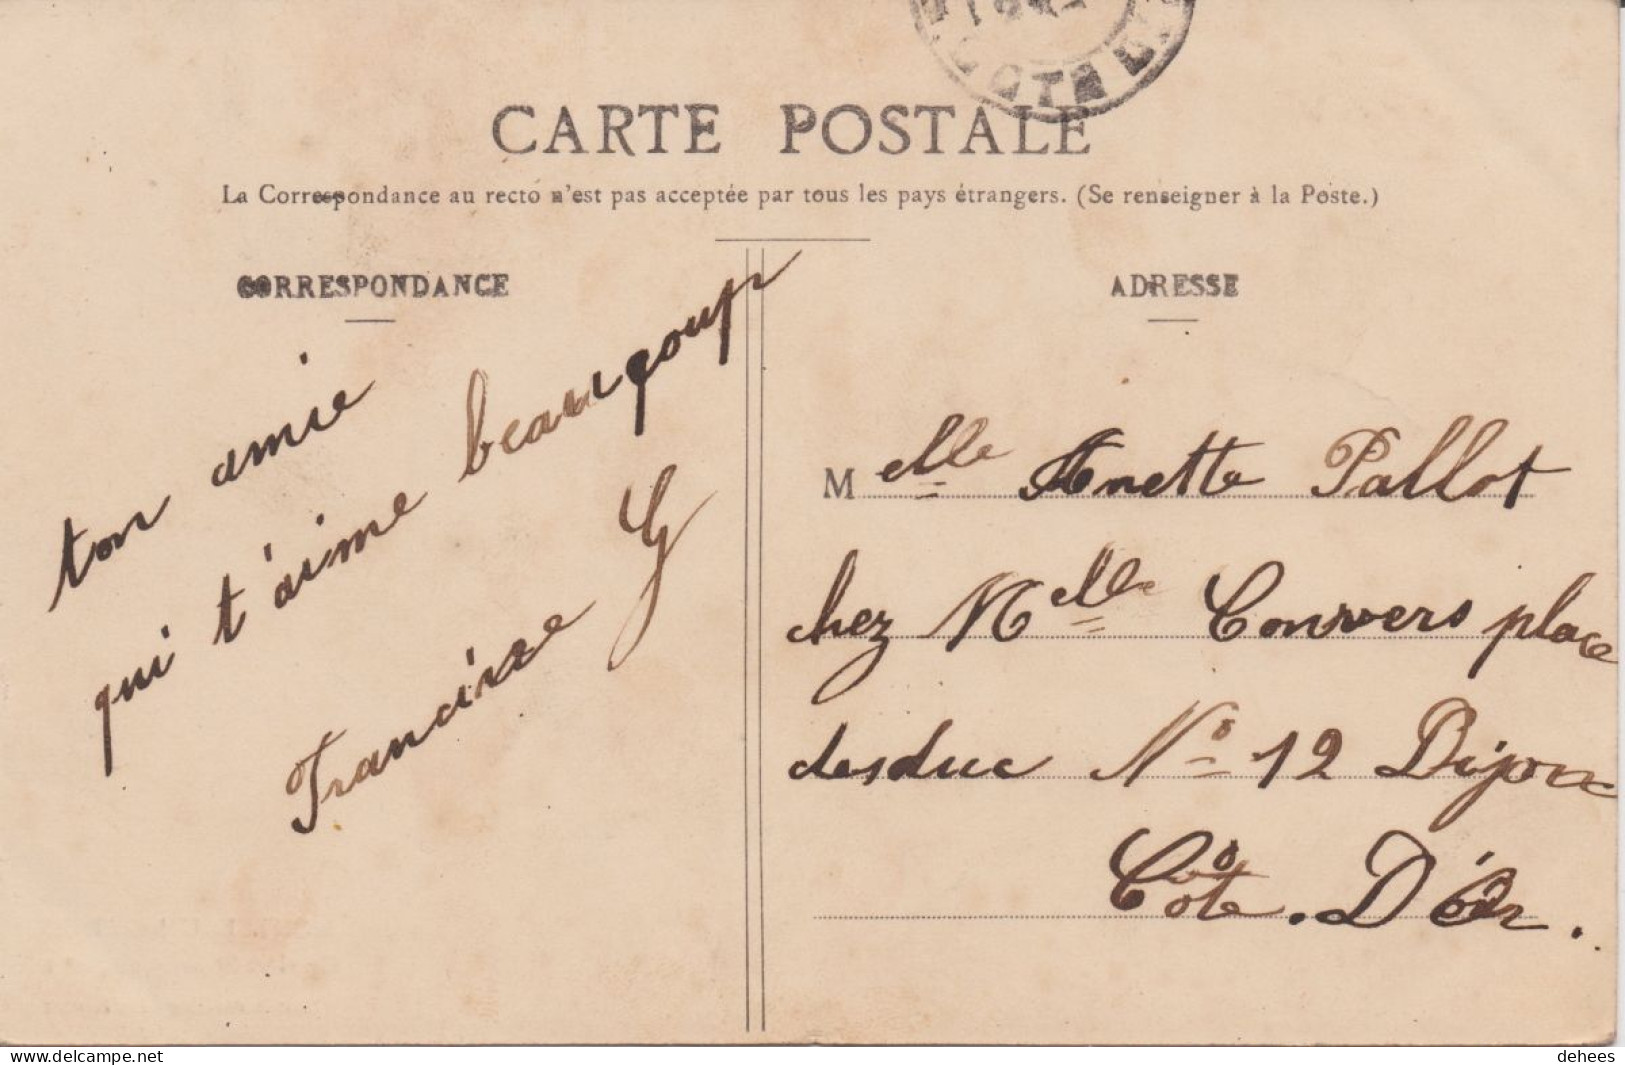 CARTE POSTALE
La Correspondance au recto n'est pas acceptée par tous les pays étrangers. (Se renseigner à la Poste.)
CORRESPONDANCE
ton amie
qui t'aime beaucoup
Francine G
ADRESSE
Melle Anette Pallot
chez Melle Convers place
desduc No 12 Dijon
Côte. D'Or.
www.delcampe.net
dehees